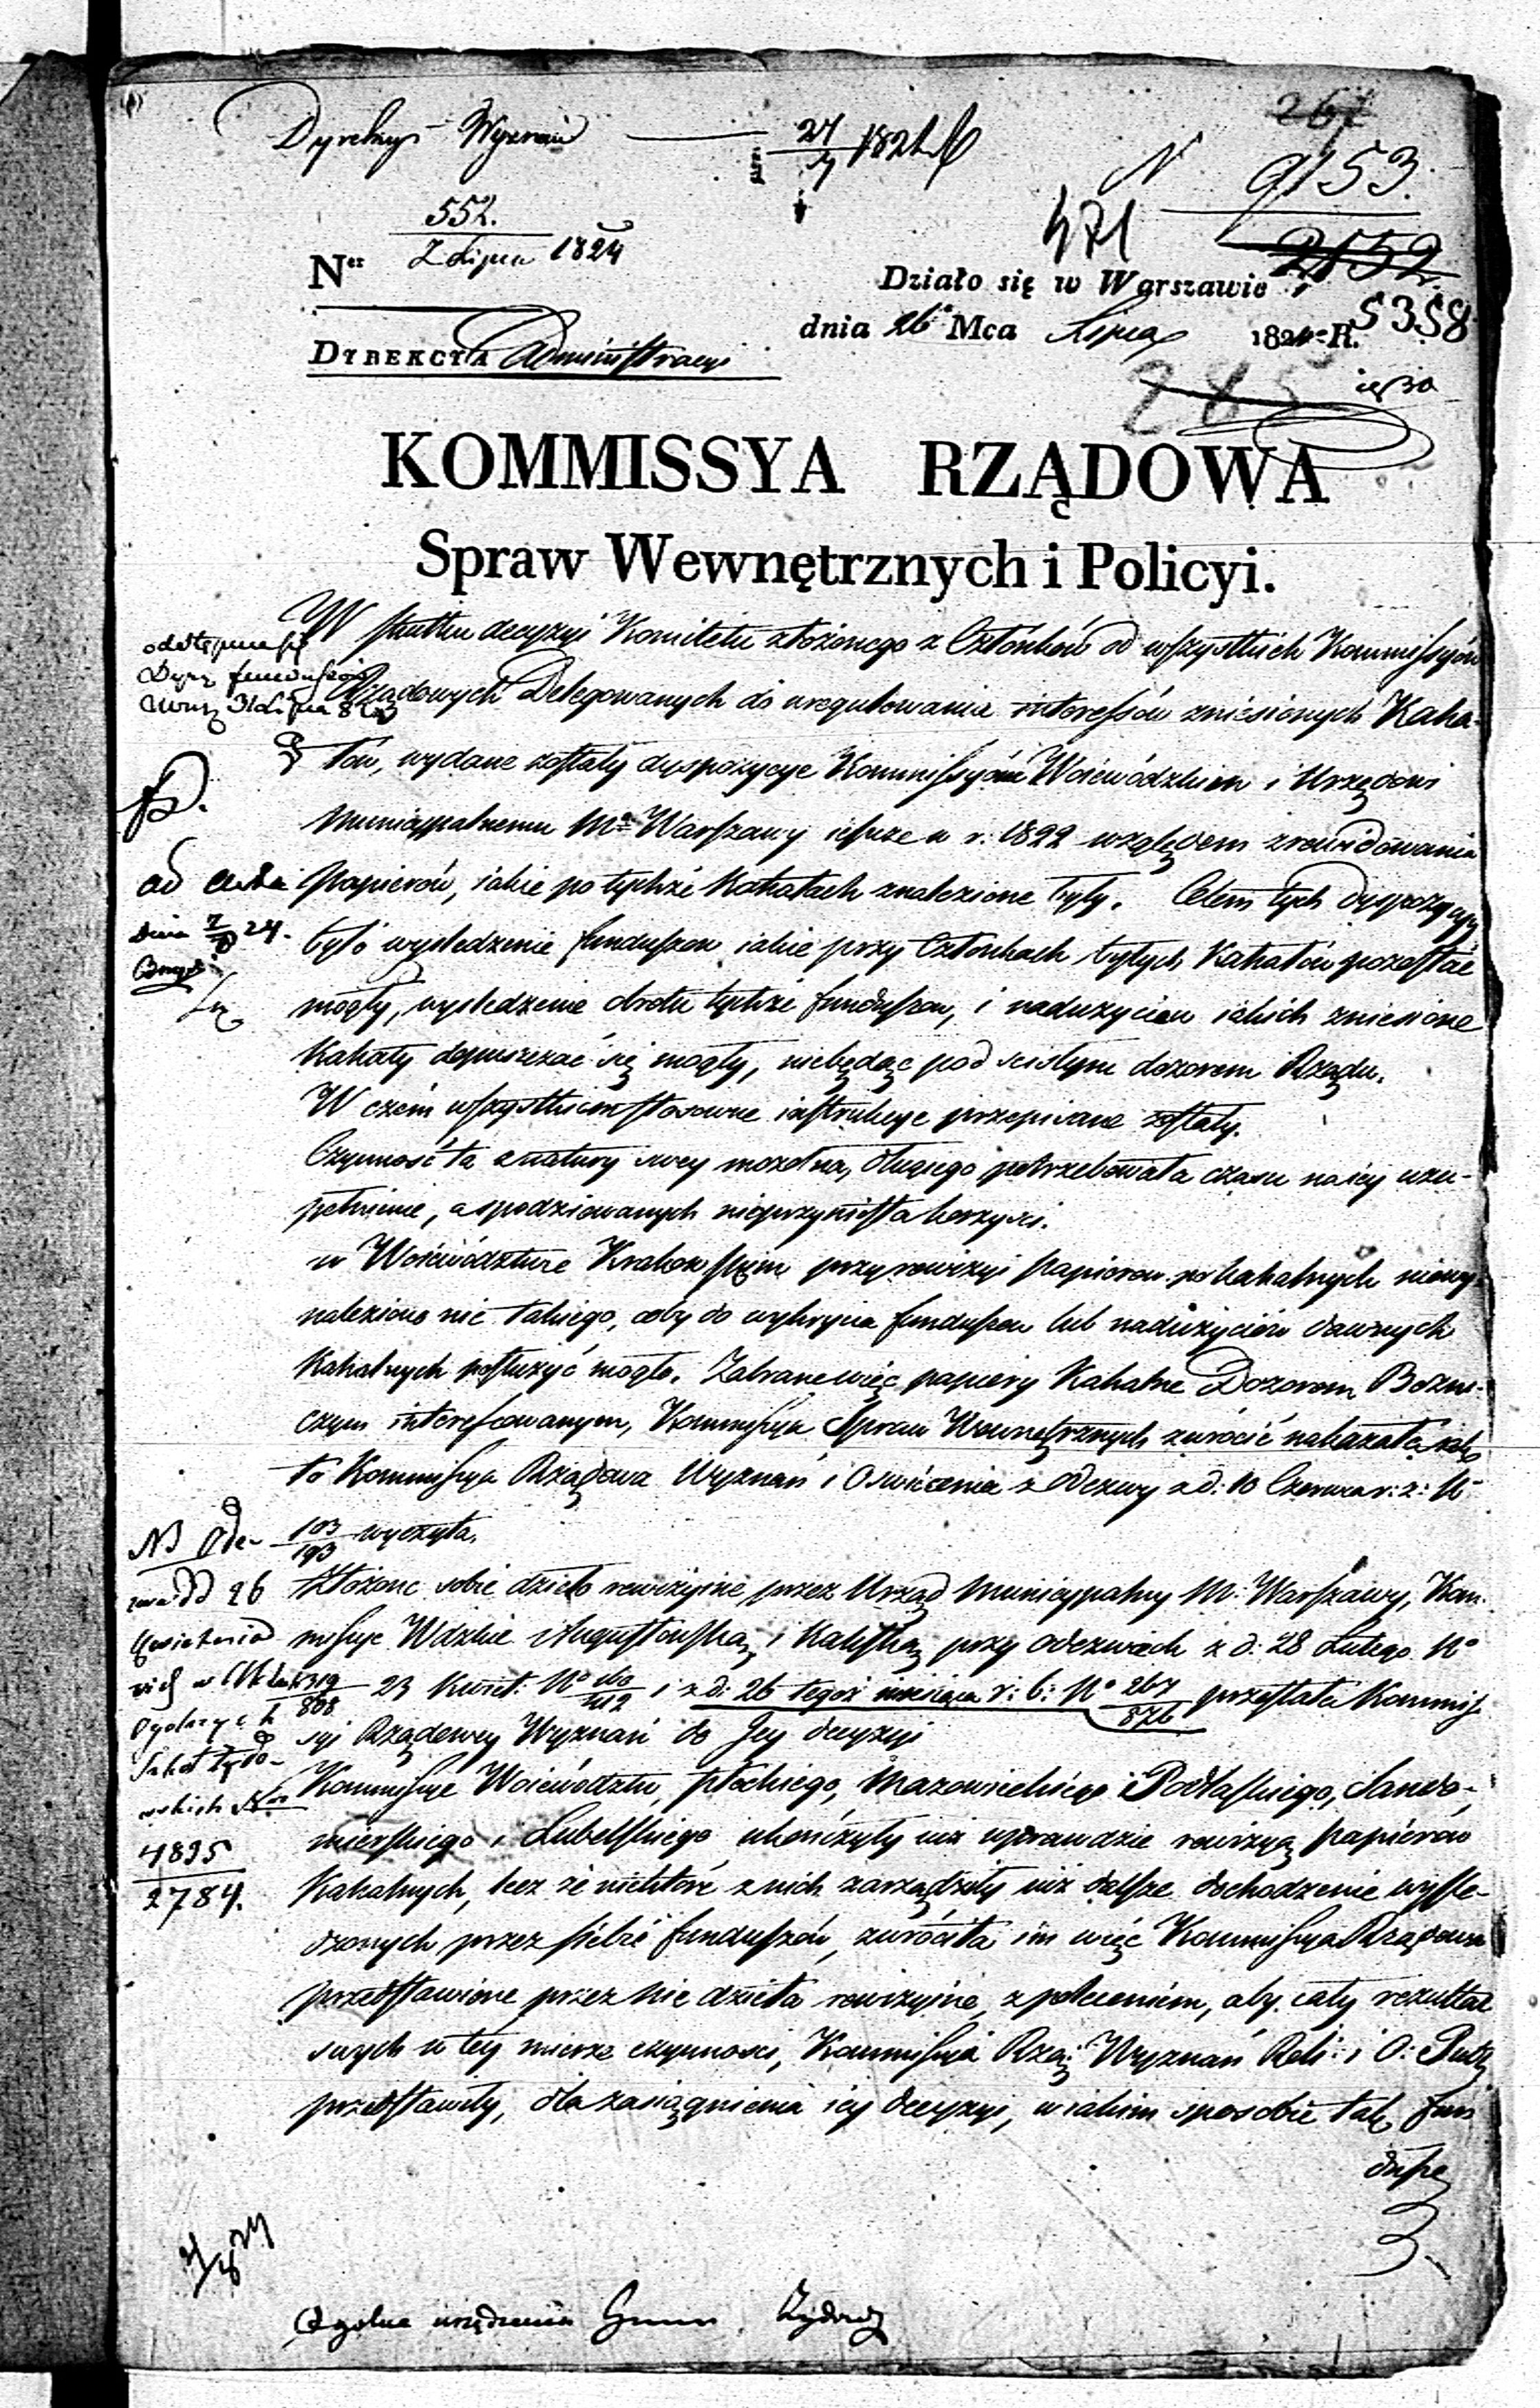 267
Dyrekcyi Wyznań — 24/7 1824
N 9153.
471
2152
552.
Ner Z Lipca 1824
Działo się w Warszawie
dnia 26 Mca Lipca 1824 R.
5358
DYREKCYA Administracyi
285
KOMMISSYA RZĄDOWA
Spraw Wewnętrznych i Policyi.
W skutku decyzyi Komitetu złożonego z Członków od wszystkich Kommissyów
Rządowych Delegowanych do uregulowania interessów zniesionych Kaha-
łów, wydane zostały dyspozycye Kommissyóm Woiewódzkim i Urzędowi
Municypalnemu Mta Warszawy ieszcze w r: 1822 względem zrewidowania
papierów, iakie po tychże Kahałach znalezione były. Celem tych dyspozycyy
było wyśledzenie funduszow iakie przy Członkach byłych Kahałów pozostać
mogły, wyśledzenie obrotu tychże funduszow, i nadużyciow iakich zniesione
Kahały dopuszczać się mogły, niebędąc pod scisłym dozorem Rządu.
W czém wszystkiem stosowne instrukcye przepisane zostały.
Czynność ta z natury swey mozolna, długiego potrzebowała czasu na iey uzu-
pełnienie, a spodziewanych nieprzyniosła korzyści.
w Woiewództwie Krakowskim przy rewizyi papierow pokahalnych niewy-
naleziono nic takiego, coby do wykrycia funduszow lub nadużyciów dawnych
Kahalnych posłużyć mogło. Zabrane więc papiery Kahalne Dozorom Bożni-
czym interesowanym, Kommissya Spraw Wewnętrznych zwrócić nakazała iak
to Kommissya Rządowa Wyznań i Oswiecenia z Odezwy z d: 10 Czerwca r: z: N
103/193 wyczyta.
Złożone sobie dzieło rewizyine przez Urząd Municypalny M: Warszawy, Kom-
missye Wdzkie Augustowską i Kaliską przy odezwach z d: 28 Lutego No
319/808 23 Kwiet: No 160/412 i z d: 26 tegoż miesiąca r: b: No 267/876 przesłała Kommis-
syi Rządowey Wyznań do Jey decyzyi
Kommissye Woiewództw, Płockiego, Mazowieckiego Podlaskiego, Sando-
mierskiego i Lubelskiego ukończyły iuż wprawdzie rewizyą papierów
Kahalnych, lecz że niektóre z nich zarządziły iuż dalsze dochodzenie wyśle-
dzonych przez siebie funduszów, zwróciła im więc Kommissya Rządowa
przedstawione przez nie dzieła rewizyine, z poleceniem, aby cały rezultat
swych w tey mierze czynnosci, Kommissyi Rzą: Wyznań Reli: i O: Publ
przedstawiły, dla zasiągnienia iey decyzyi, w iakim sposobie tak fun
dusze
odstępuie się
Dyr funduszów
ad acta
dnia 7/8 24.
NB Ode-
zwa dd 26
Kwietnia
4895
2784.
Ogólne urządzenia Gmin Żydow